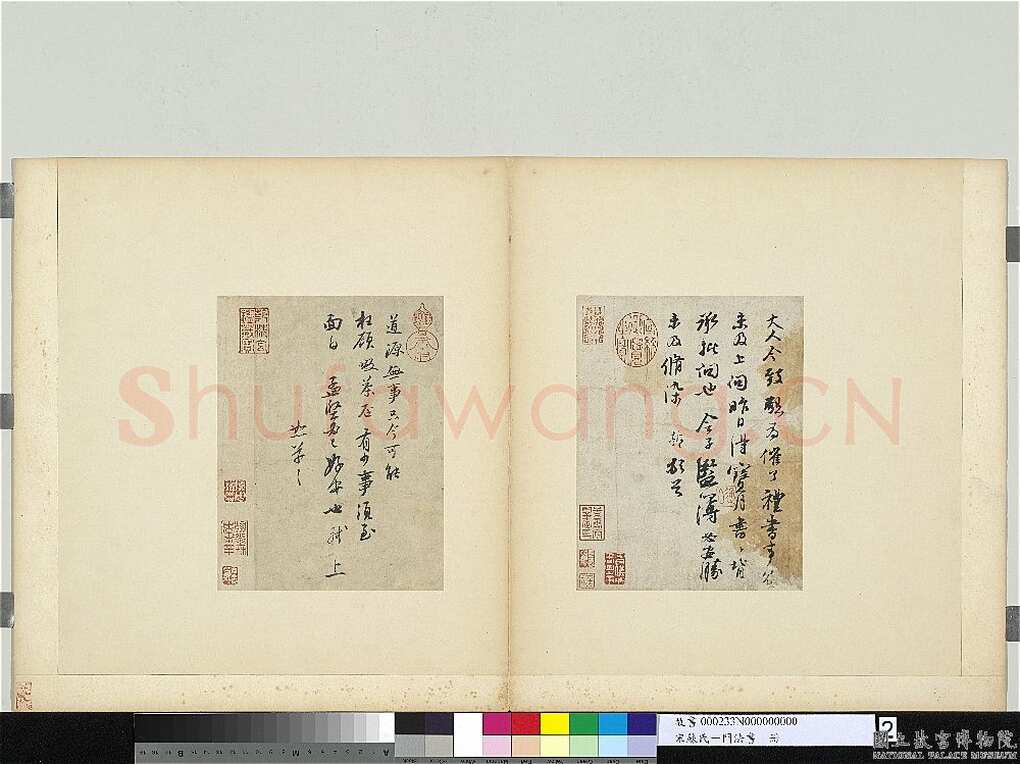 大人令致懇為催了禮書事冗
未及上問昨日得寶月書〻背
承批問也 令子監簿必安勝
未及脩染 軾頓首
道源無事只今可能
枉顧啜茶否有少事須至
面白 孟堅必已好安也 軾上
恕草〻
Shufawang.CN
故書 000233N000000000
宋蘇氏一門法書 冊
2
國立故宮博物院
NATIONAL PALACE MUSEUM